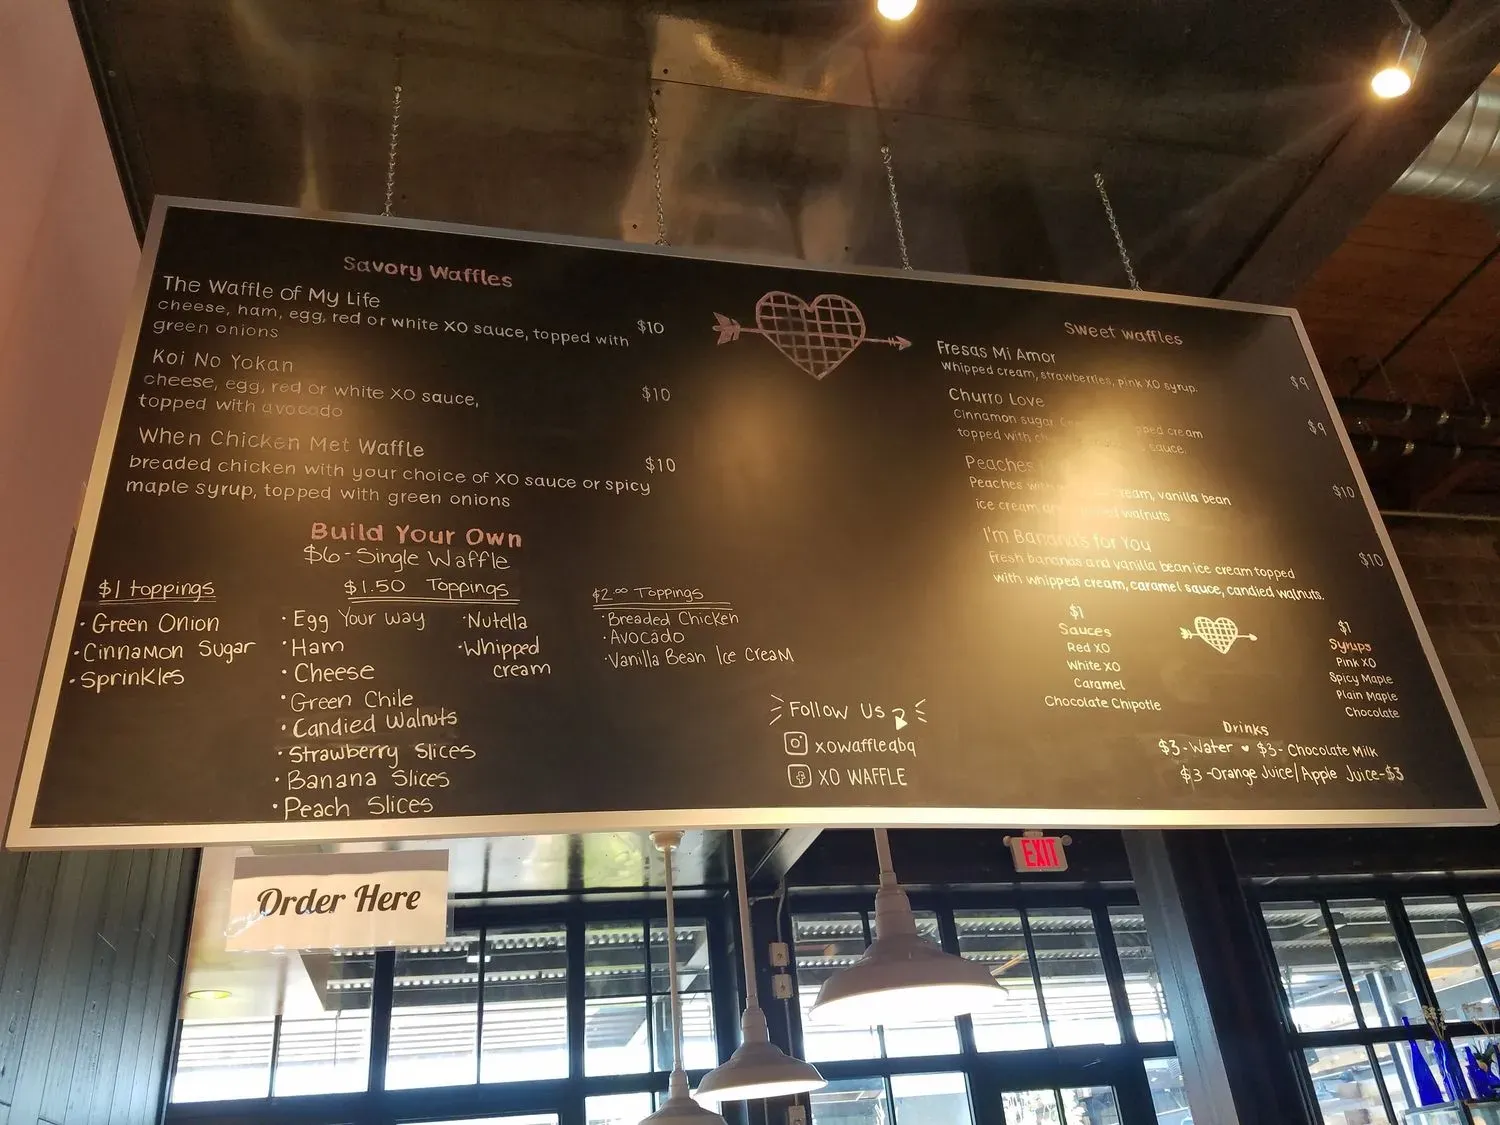 Savory Waffles
The Waffle of My Life
cheese, ham, egg, red or white XO sauce, topped with $10
green onions
Koi No Yokan
cheese, egg, red or white XO sauce, $10
topped with avocado
When Chicken Met Waffle
breaded chicken with your choice of XO sauce or spicy $10
maple syrup, topped with green onions
Build Your Own
$6-Single Waffle
$1 toppings
· Green Onion
· Cinnamon Sugar
· Sprinkles
$1.50 Toppings
· Egg Your way
· Ham
· Cheese
· Green Chile
· Candied Walnuts
· Strawberry Slices
· Banana Slices
· Peach Slices
· Nutella
· Whipped
cream
$2.00 Toppings
· Breaded Chicken
· Avocado
· Vanilla Bean Ice Cream
Follow Us
xowaffleabq
XO WAFFLE
Sweet waffles
Fresas Mi Amor
Whipped cream, strawberries, pink XO syrup. $9
Churro Love
Cinnamon sugar cream $9
topped with sauce.
Peaches
Peaches cream, vanilla bean $10
ice cream walnuts
I'm Banana's for You
Fresh bananas and vanilla bean ice cream topped $10
with whipped cream, caramel sauce, candied walnuts.
$1
Sauces
Red XO
White XO
Caramel
Chocolate Chipotle
$1
Syrups
Pink XO
Spicy Maple
Plain Maple
Chocolate
Drinks
$3-Water ♥ $3-Chocolate Milk
$3-Orange Juice/Apple Juice-$3
Order Here
EXIT